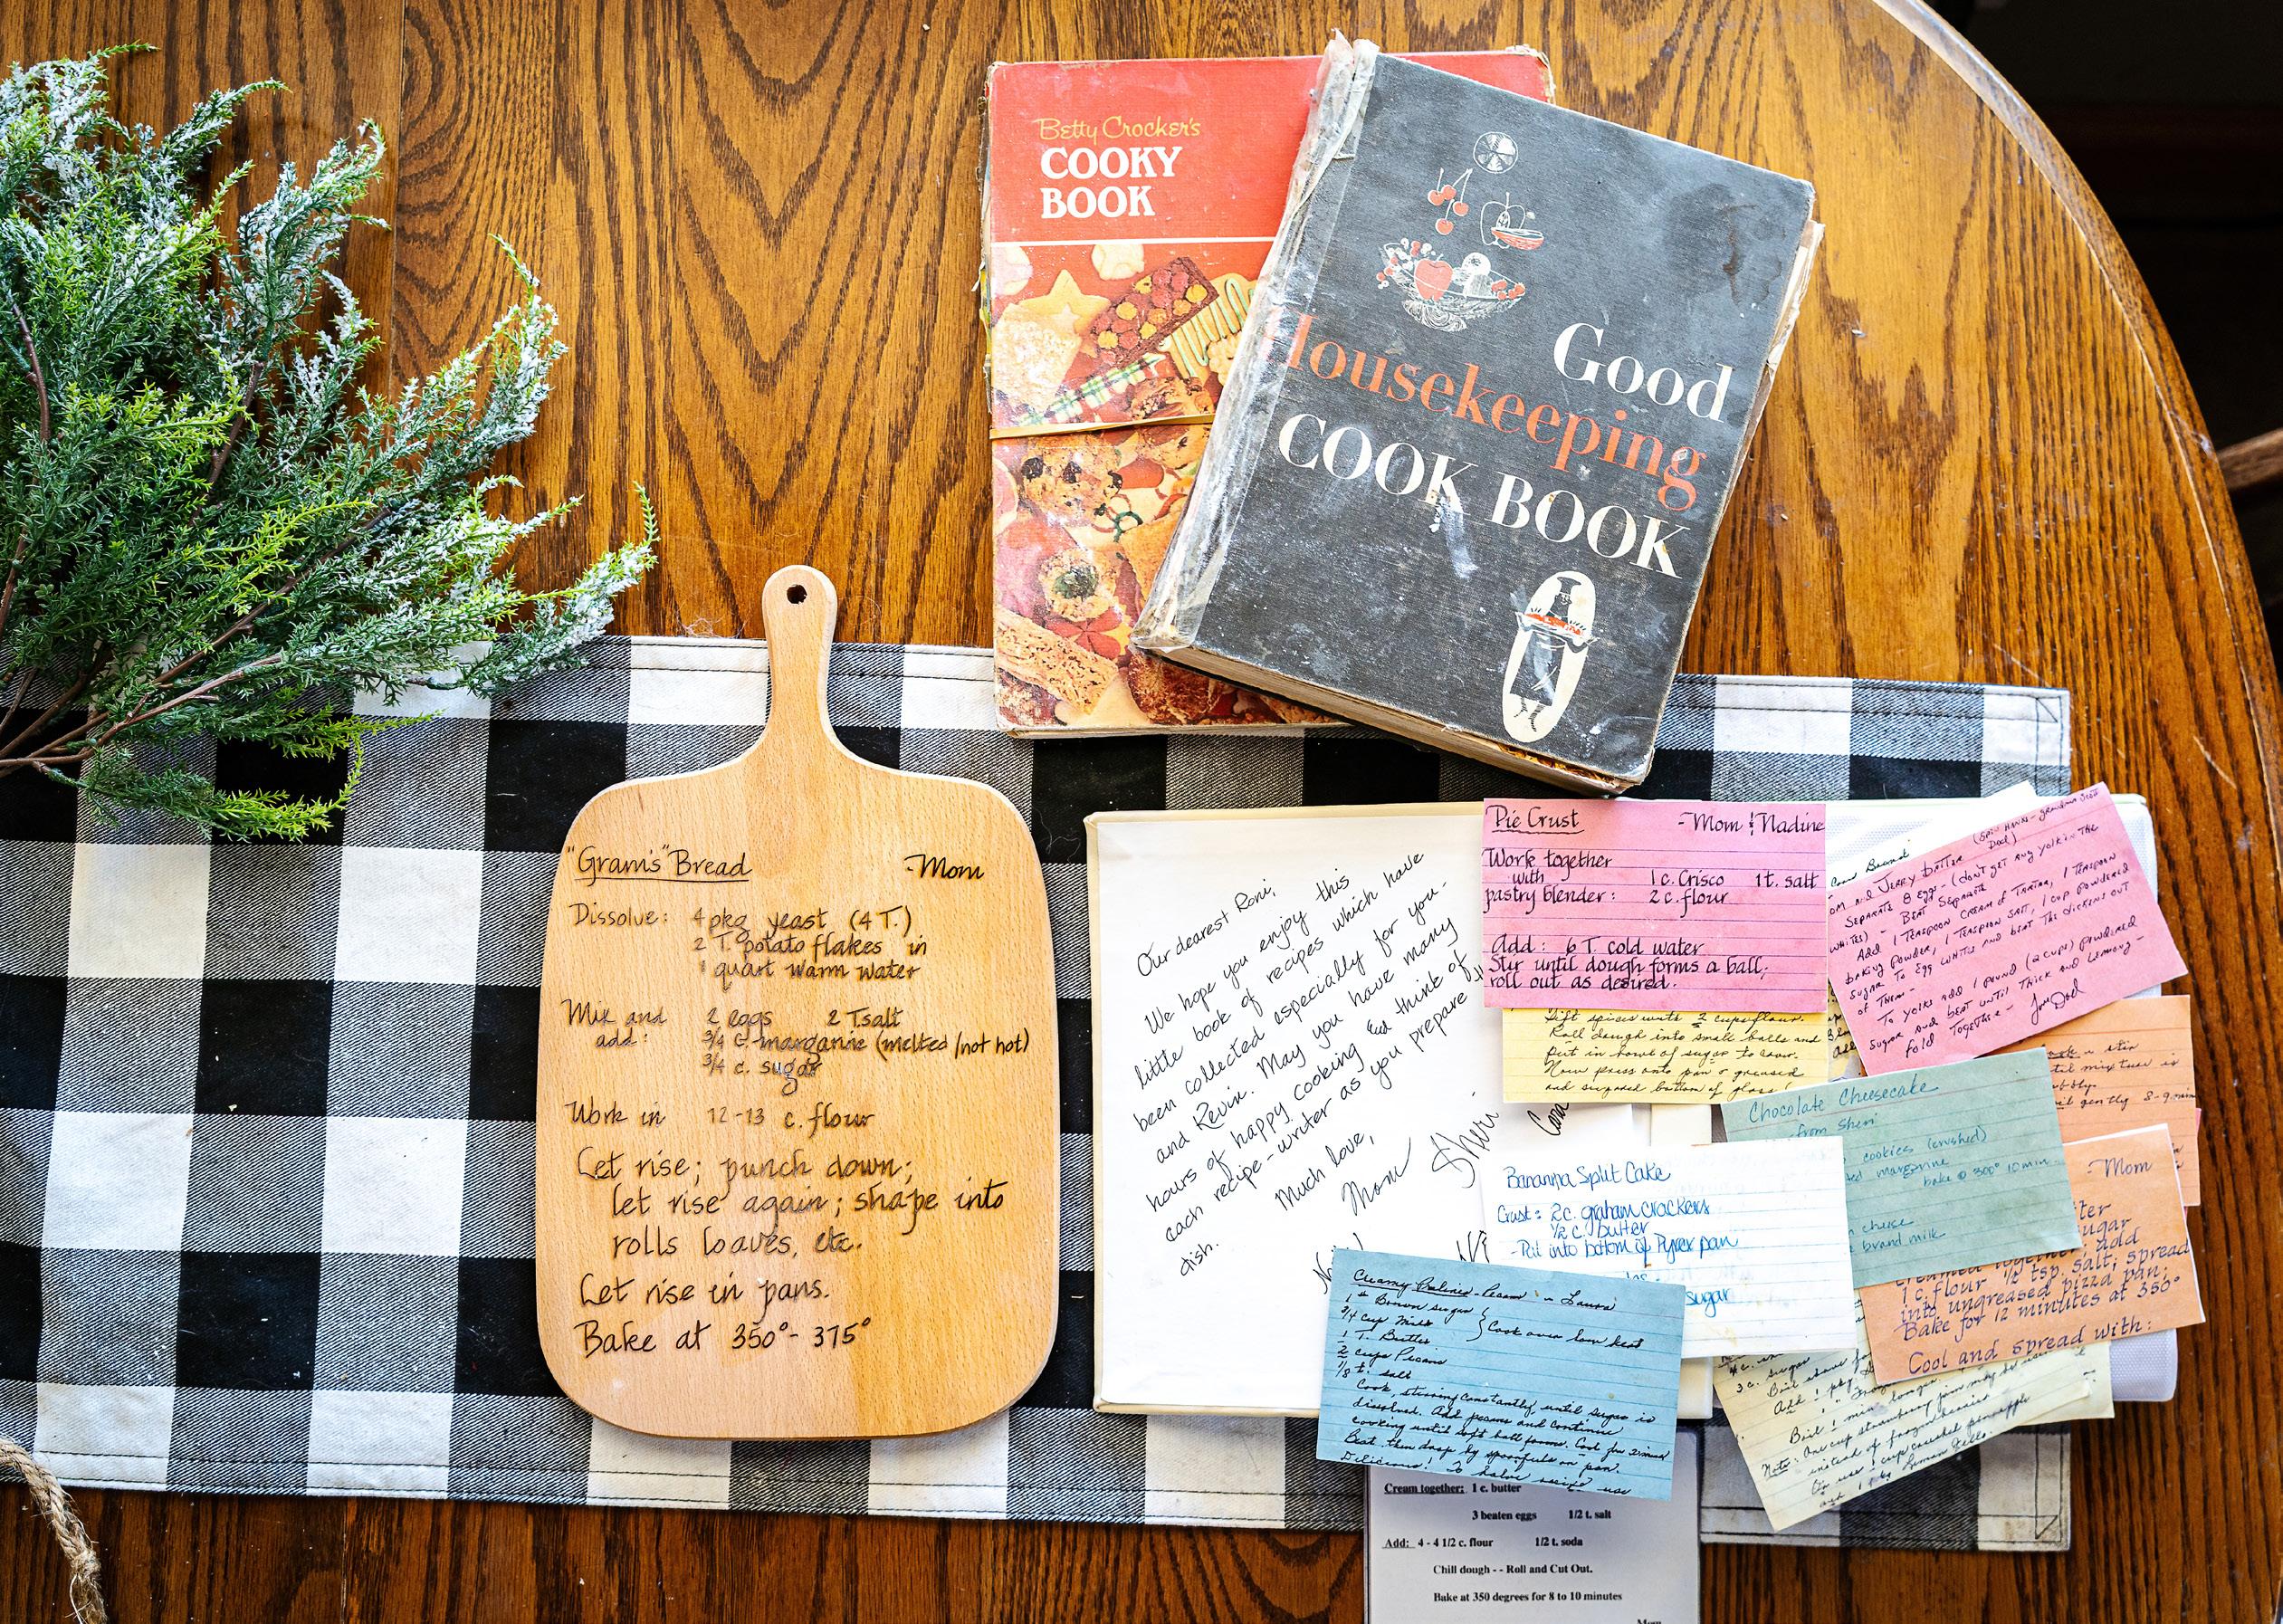 Betty Crocker's
COOKY
BOOK
Good
Housekeeping
COOK BOOK
"Gram's" Bread -Mom
Dissolve: 4 pkg yeast (4 T.)
2 T. potato flakes in
1 quart warm water
Mix and 2 eggs 2 T salt
add: 3/4 c. margarine (melted/not hot)
3/4 c. sugar
Work in 12-13 c. flour
Let rise; punch down;
let rise again; shape into
rolls loaves, etc.
Let rise in pans.
Bake at 350°-375°
Our dearest Roni,
We hope you enjoy this
little book of recipes which have
been collected especially for you
and Kevin. May you have many
hours of happy cooking and think of
each recipe-writer as you prepare
dish.
Much love,
Mom
Sheri
Cara
Pie Crust -Mom & Nadine
Work together
with 1 c. Crisco 1 t. salt
pastry blender: 2 c. flour
Add: 6 T. cold water
Stir until dough forms a ball;
roll out as desired.
Sift spices with 2 cups flour.
Roll dough into small balls and
put in bowl of sugar to cover.
Now press onto pan c greased
and sugared bottom of glass!
Jerry Batter
Separate 8 eggs - (don't get any yolk in the
whites) - Beat separate
Add 1 teaspoon cream of tartar, 1 teaspoon
baking powder, 1 teaspoon salt, 1 cup powdered
sugar to egg whites and beat the dickens out
of them -
To yolks add 1 pound (2 cups) powdered
sugar and beat until thick and lemony -
fold together - Love Dad
Chocolate Cheesecake
from Sheri
cookies (crushed)
margarine
bake @ 300° 10 min
cheese
brand milk
til mixture is
gently 8-9 min
-Mom
sugar
add
1 c. flour 1/2 tsp. salt; spread
into ungreased pizza pan;
Bake for 12 minutes at 350°
Cool and spread with:
Bananna Split Cake
Crust: 2 c. graham crackers
1/2 c. butter
- Put into bottom of Pyrex pan
sugar
Creamy Praline - Pecan - Laura
1 # Brown sugar
3/4 cup Milk } Cook over low heat
1 T. Butter
2 cups Pecans
1/8 t. salt
Cook, stirring constantly, until sugar is
dissolved. Add pecans and continue
cooking until soft ball forms. Cool for 2 min
Beat then drop by spoonfuls on pan.
Delicious! To halve recipe use
3 c. sugar
Boil
Add 1 pkg
Boil 1 min longer.
Note: One cup strawberry jam may be
instead of frozen berries
Or use 1 cup crushed pineapple
and 1 pkg Lemon Jello.
Cream together: 1 c. butter
3 beaten eggs 1/2 t. salt
Add: 4 - 4 1/2 c. flour 1/2 t. soda
Chill dough - - Roll and Cut Out.
Bake at 350 degrees for 8 to 10 minutes
Mom